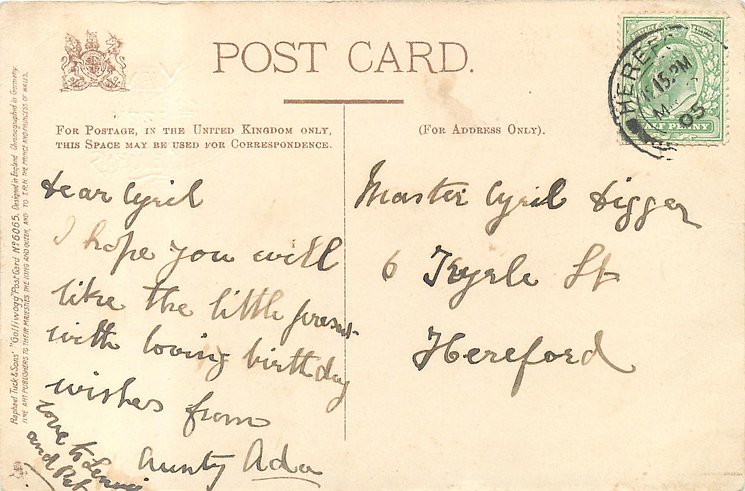 POST CARD.
FOR POSTAGE, IN THE UNITED KINGDOM ONLY,
THIS SPACE MAY BE USED FOR CORRESPONDENCE.
(FOR ADDRESS ONLY).
Dear Cyril
I hope you will
like the little present
with loving birthday
wishes from
Aunty Ada
love to
and Pat
Master Cyril Digger
6 Tryrle St
Hereford
HEREF
15 PM
05
HALF PENNY
Raphael Tuck & Sons' "Golliwogg" Post Card No 6065. Designed in England. Chromographed in Germany.
FINE ART PUBLISHERS TO THEIR MAJESTIES THE KING AND QUEEN, AND TO T.R.H. THE PRINCE AND PRINCESS OF WALES.